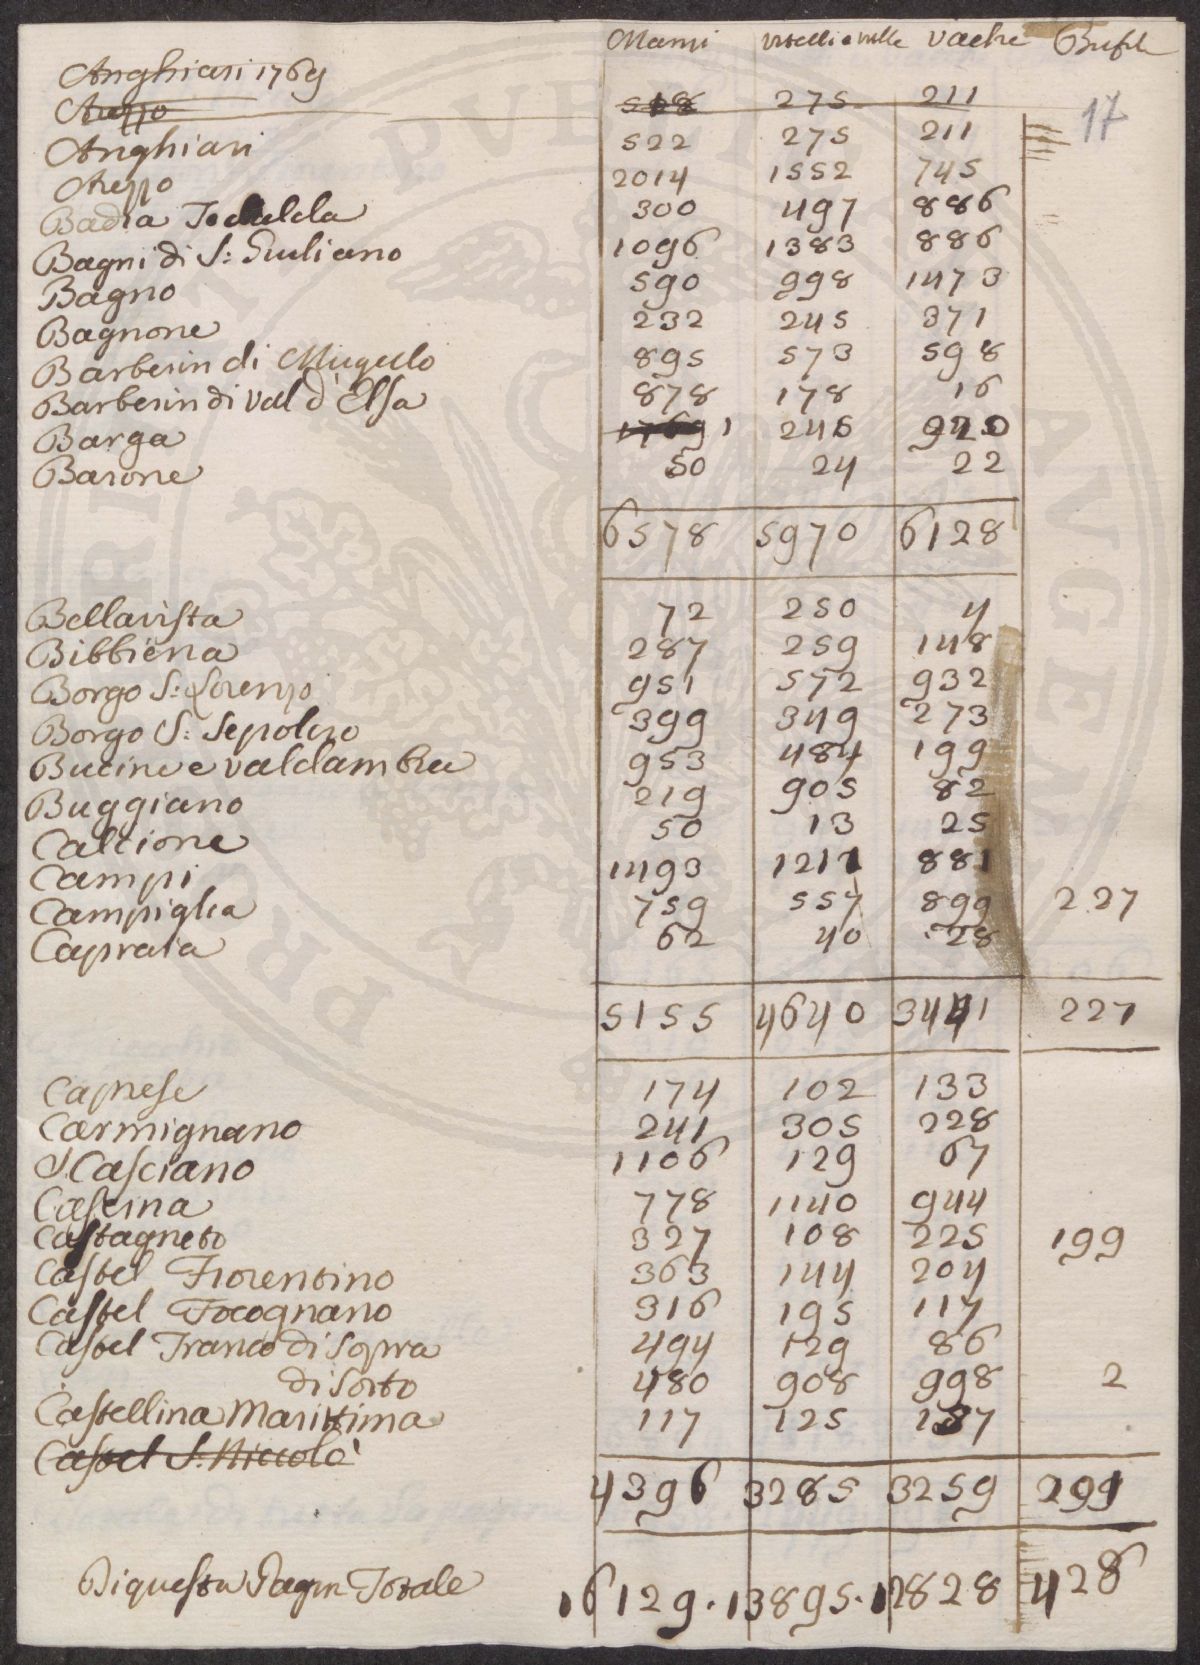 Manzi vitelli e vitelle Vacche Bufale
Anghiari 1769
Arezzo 518 275 211
17
Anghiari 522 275 211
Arezzo 2014 1552 745
Badia Tedalda 300 497 886
Bagni di S: Giuliano 1096 1383 886
Bagno 590 998 1473
Bagnone 232 245 371
Barberin di Mugello 895 573 598
Barberin di Val d'Elsa 878 178 16
Barga 1 245 920
Barone 50 24 22
6578 5970 6128
Bellavista 72 250 4
Bibbiena 287 259 148
Borgo S: Lorenzo 951 572 932
Borgo S: Sepolcro 399 349 273
Bucine e Valdambra 953 484 199
Buggiano 219 905 82
Calcione 50 13 25
Campi 1493 1211 881
Campiglia 759 557 899 227
Capraia 62 40 28
5155 4640 3441 227
Caprese 174 102 133
Carmignano 241 305 228
S. Casciano 1106 129 67
Cascina 778 1140 944
Castagneto 327 108 225 199
Castel Fiorentino 363 144 204
Castel Focognano 316 195 117
Castel Franco di Sopra 494 129 86
di Sotto 480 908 998 2
Castellina Marittima 117 125 187
Castel S: Niccolò
4396 3285 3259 291
Di questa Pagin Totale 16129. 13895. 12828 428